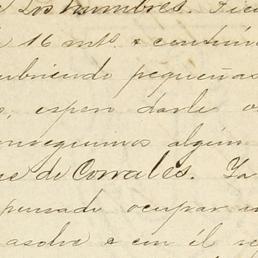 Los hombres.
16 mts. e continú
ubriendo pequeñas
s, espero darle
nseguimos algún
ue de Corrales. Ya
pensado ocupar
e con él